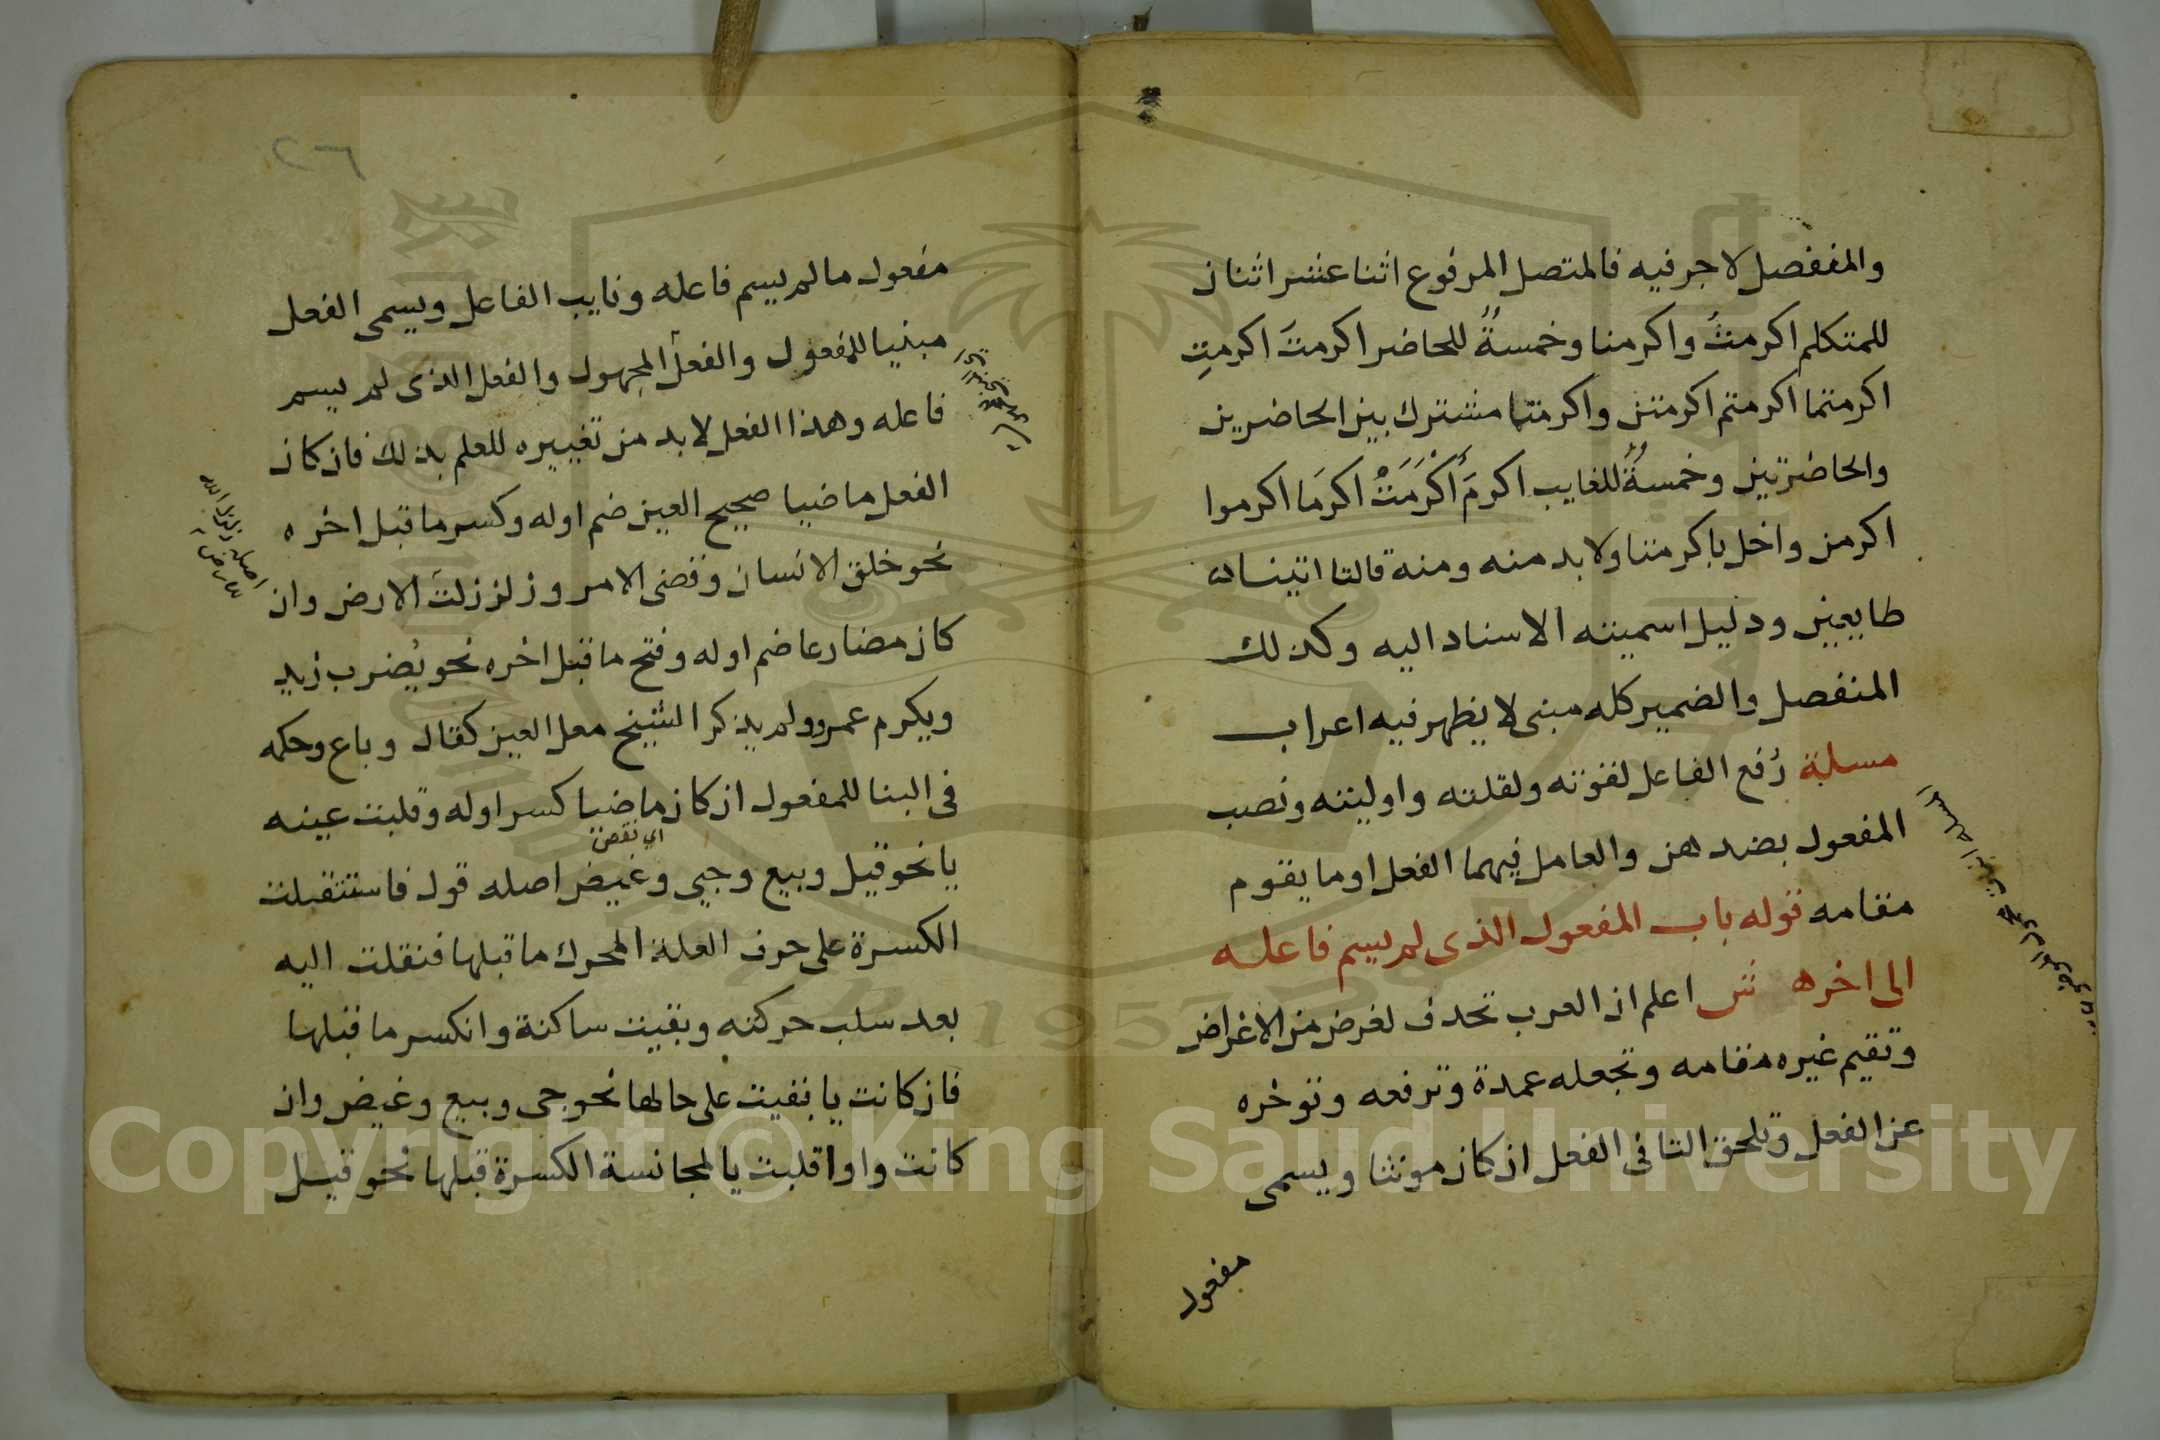 والمنفصل لا جر فيه فالمتصل المرفوع اثنا عشر اثنان
للمتكلم اكرمتُ واكرمنا وخمسةٌ للحاضر اكرمتَ اكرمتِ
اكرمتما اكرمتم اكرمتن واكرمتما مشترك بين الحاضرين
والحاضرتين وخمسةٌ للغايب اكرمَ أكْرَمَتْ اكرمَا اكرموا
اكرمن واخل باكرمتا ولا بد منه ومنه قالتا اتينا
طايعين ودليل اسميته الاسناد اليه وكذلك
المنفصل والضمير كله مبنى لا يظهر فيه اعراب
مسلة رُفع الفاعل لقوته ولقلته واوليته ونصب
المفعول بضدهن والعامل فيهما الفعل او ما يقوم
مقامه قوله باب المفعول الذى لم يسم فاعله
الى اخره ش اعلم ان العرب تحذف لغرض من الاغراض
وتقيم غيره مقامه وتجعله عمدة وترفعه وتوخره
عن الفعل وتلحق التا فى الفعل ان كان مونثا ويسمى
مفعول
٢٦
مفعول ما لم يسم فاعله ونايب الفاعل ويسمى الفعل
مبنيا للمفعول والفعل المجهول والفعل الذى لم يسم
فاعله وهذا الفعل لا بد من تغييره للعلم بذلك فان كان
الفعل ماضيا صحيح العين ضم اوله وكسر ما قبل اخره
نحو خلق الانسان وقضى الامر وزلزلت الارض وان
كان مضارعا ضم اوله وفتح ما قبل اخره نحو يُضرب زيد
ويكرم عمرو ولم يذكر الشيخ معل العين كقال وباع وحكمه
فى البنا للمفعول ان كان ماضيا كسر اوله وقلبت عينه
اي نقص
يا نحو قيل وبيع وجيى وغيض اصله قول فاستثقلت
الكسرة على حرف العلة المحرك ما قبلها فنقلت اليه
بعد سلب حركته وبقيت ساكنة وانكسر ما قبلها
فان كانت يا بقيت على حالها نحو جى وبيع وغيض وان
كانت واوا قلبت يا لمجانسة الكسرة قبلها نحو قيل
Copyright © King Saud University